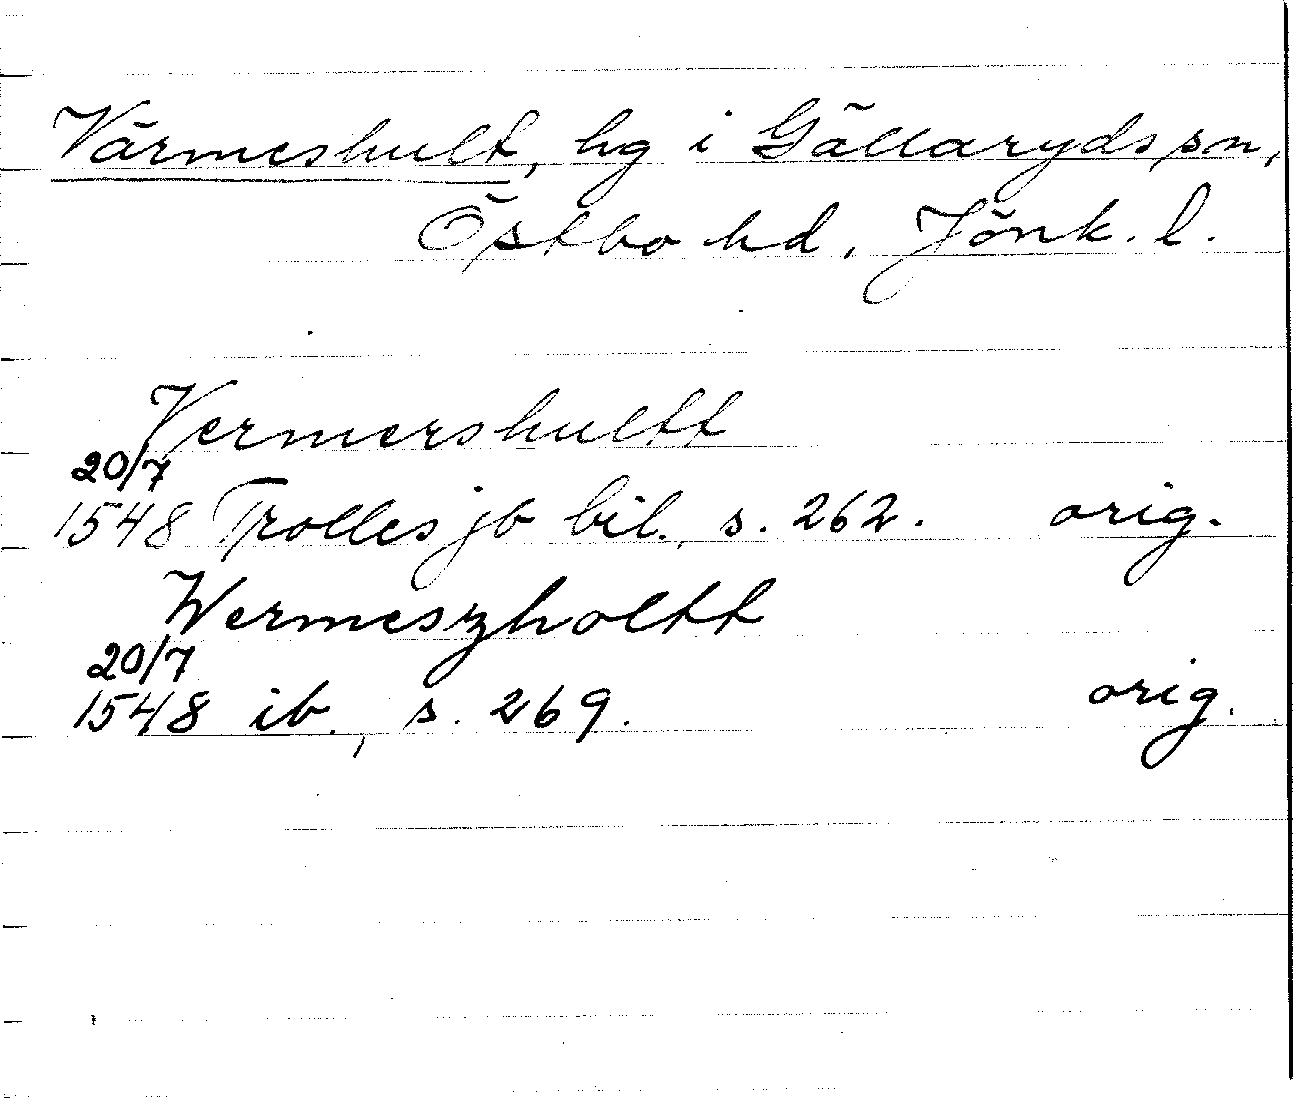 Värmeshult, hg i Gällaryds sn,
Östbo hd, Jönk. l.
Vermershultt
20/7
1548 Trolles jb bil., s. 262. orig.
Wermeszholtt
20/7
1548 ib., s. 269. orig.